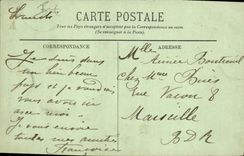 Lourdes
CARTE POSTALE
Tous les Pays étrangers n'acceptent pas la Correspondance au verso
(Se renseigner à la Poste).
CORRESPONDANCE
Je suis dans
un bien beau
pays et je voudrais
vous avoir
avec moi
Je vous envoie
toutes mes amitiés
Françoise
ADRESSE
Mlle Aimée
chez Mme
Rue Vacon 8
Marseille
B D R